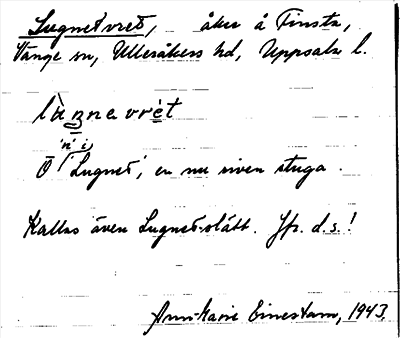 Lugnetvret, åker å Finsta,
Vänge sn, Ulleråkers hd, Uppsala l.
lùgnevrèt
Ö 'n' i 'Lugnet', en nu riven stuga.
Kallas även Lugnet-slätt. Jfr. d.s.!
Ann-Marie Einestam, 1943.